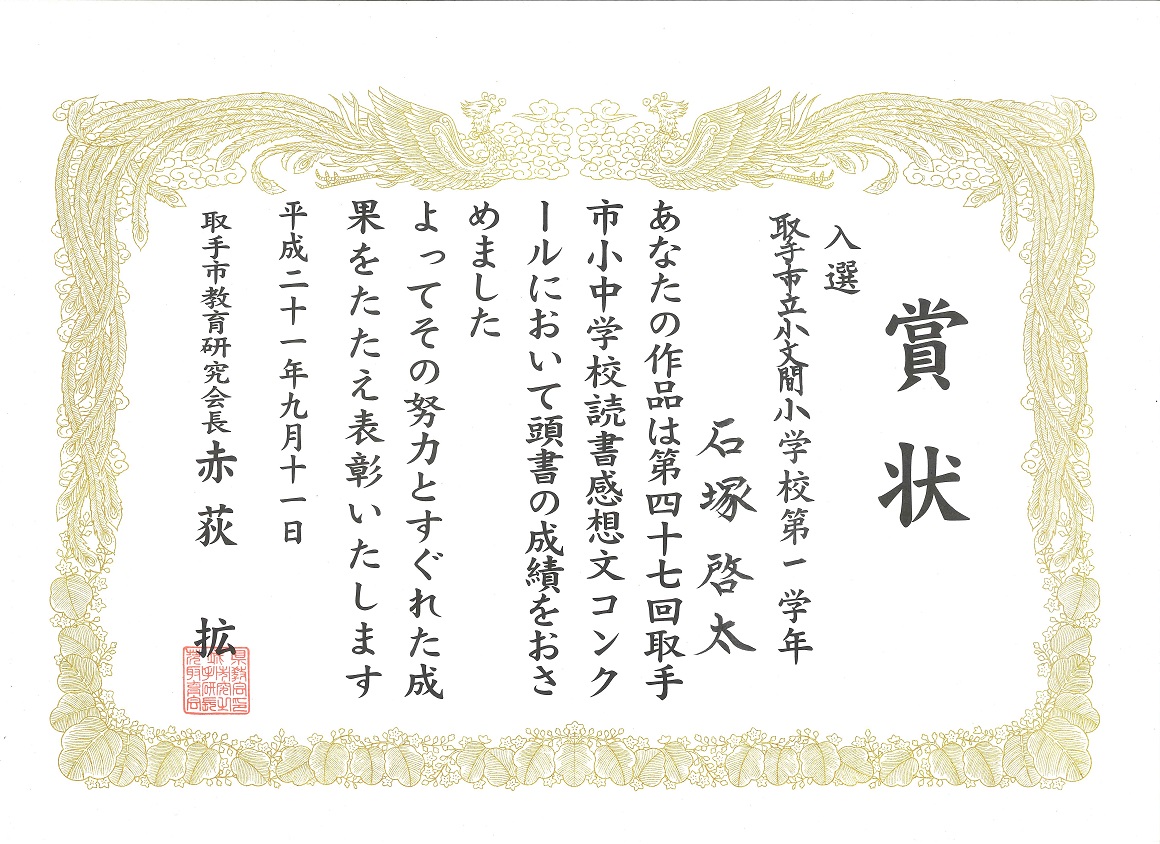 賞状
入選
取手市立小文間小学校第一学年
石塚啓太
あなたの作品は第四十七回取手
市小中学校読書感想文コンク
ールにおいて頭書の成績をおさ
めました
よってその努力とすぐれた成
果をたたえ表彰いたします
平成二十一年九月十一日
取手市教育研究会長 赤荻 拡